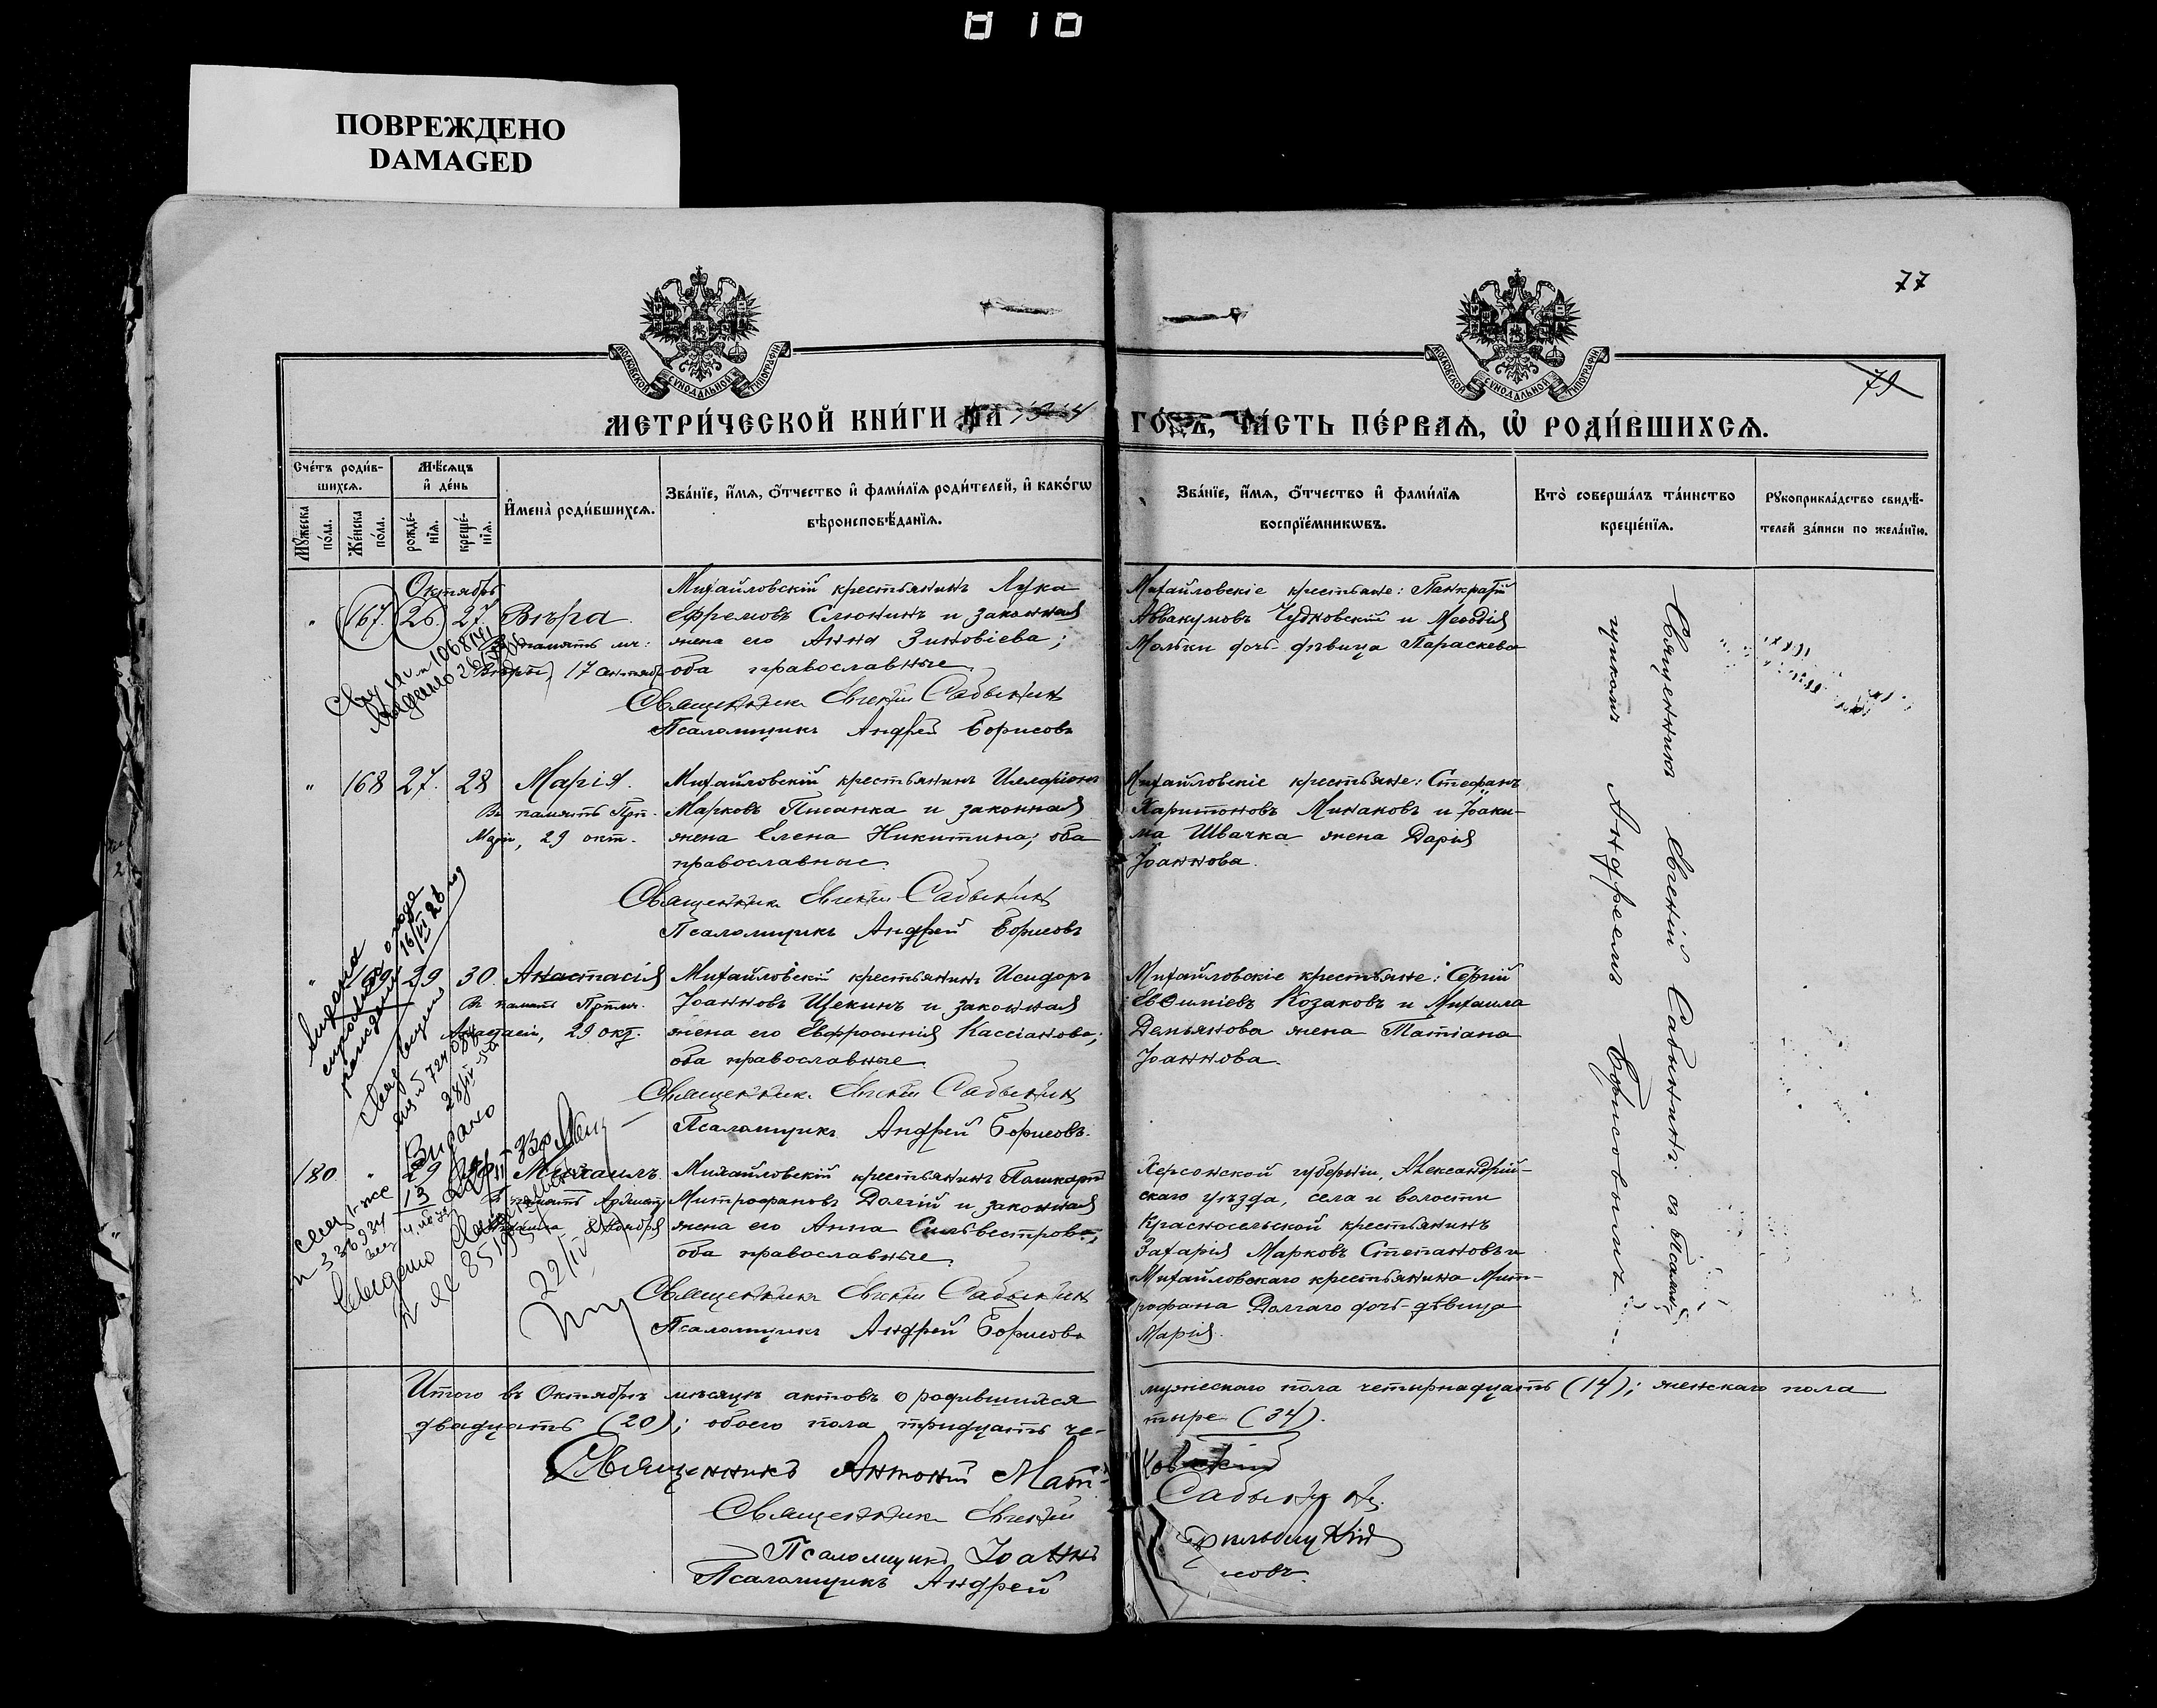 ПОВРЕЖДЕНО
DAMAGED
77
79
МЕТРИ́ЧЕСКОЙ КНИ́ГИ НА 1914
ГО́ДЪ, ЧА́СТЬ ПЕ́РВАѦ, Ѡ҆ РОДИ́ВШИХСѦ.
Сче́тъ роди́вшихсѧ.
Мꙋ́жеска по́ла.
Же́нска по́ла.
Мѣ́сѧцъ и҆ де́нь
рожде́нїѧ.
креще́нїѧ.
И҆мена̀ роди́вшихсѧ.
Зва́нїе, и҆́мѧ, ѻ҆́тчество и҆ фами́лїѧ роди́телей, и҆ како́гѡ
вѣроисповѣ́данїѧ.
Зва́нїе, и҆́мѧ, ѻ҆́тчество и҆ фами́лїѧ
воспрїе́мникѡвъ.
Кто̀ соверша́лъ та́инство
креще́нїѧ.
Рꙋкоприкла́дство свидѣ́-
телей за́писи по жела́нїю.
Октябрь
" 167. 26. 27. Вѣра.
Въ память мч:
Вѣры, 17 сентяб.
Михайловскій крестьянинъ Лука
Ефремовъ Слюнинъ и законная
жена его Анна Зиновіева;
оба православные.
Священникъ Евгеній Сабынинъ
Псаломщикъ Андрей Борисовъ
Михайловскіе крестьяне: Панкратій
Аввакумовъ Чудновскій и Меѳодія
Мольки дочь-дѣвица Параскева
" 168 27. 28 Марія.
Въ память Прп.
Маріи, 29 окт.
Михайловскій крестьянинъ Илларіонъ
Марковъ Писанка и законная
жена Елена Никитина; оба
православные.
Священникъ Евгеній Сабынинъ
Псаломщикъ Андрей Борисовъ
Михайловскіе крестьяне: Стефанъ
Харитоновъ Минаковъ и Іоаки-
ма Швачка жена Дарія
Іоаннова.
" 29 30. Анастасія
Въ память Прпмч.
Анастасіи, 29 окт.
Михайловскій крестьянинъ Исидоръ
Іоанновъ Щекинъ и законная
жена его Евфросинія Кассіанова;
оба православные.
Священникъ Евгеній Сабынинъ
Псаломщикъ Андрей Борисовъ.
Михайловскіе крестьяне: Сергій
Евѳиміевъ Козаковъ и Михаила
Демьянова жена Татіана
Іоаннова.
180. " 29 Михаилъ.
Михаила 8 Ноября
Михайловскій крестьянинъ Поликарпъ
Митрофановъ Долгій и законная
жена его Анна Сильвестрова;
оба православные.
Священникъ Евгеній Сабынинъ
Псаломщикъ Андрей Борисовъ
Херсонской губерніи, Александрій-
скаго уѣзда, села и волости
Красносельской крестьянинъ
Захарія Марковъ Степановъ и
Михайловскаго крестьянина Мит-
рофана Долгаго дочь-дѣвица
Марія.
Священникъ Евгеній Сабынинъ съ псалом-
щикомъ Андреемъ Борисовымъ.
Итого въ Октябрѣ мѣсяцѣ актовъ о родившихся
мужескаго пола четырнадцать (14); женскаго пола
двадцать (20); обоего пола тридцать че-
тыре (34).
Священникъ Антоній Мат-
Священникъ Евгеній
Сабынинъ.
Псаломщикъ Іоаннъ
Псаломщикъ Андрей